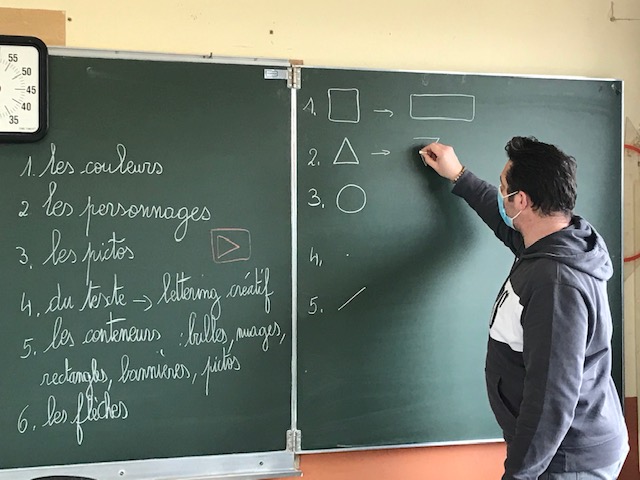 55
50
45
40
35
1. les couleurs
2 les personnages
3. les pictos
4. du texte → lettering créatif
5. les conteneurs : bulles, nuages,
rectangles, bannières, pictos
6. les flèches
1. →
2. →
3.
4.
5.